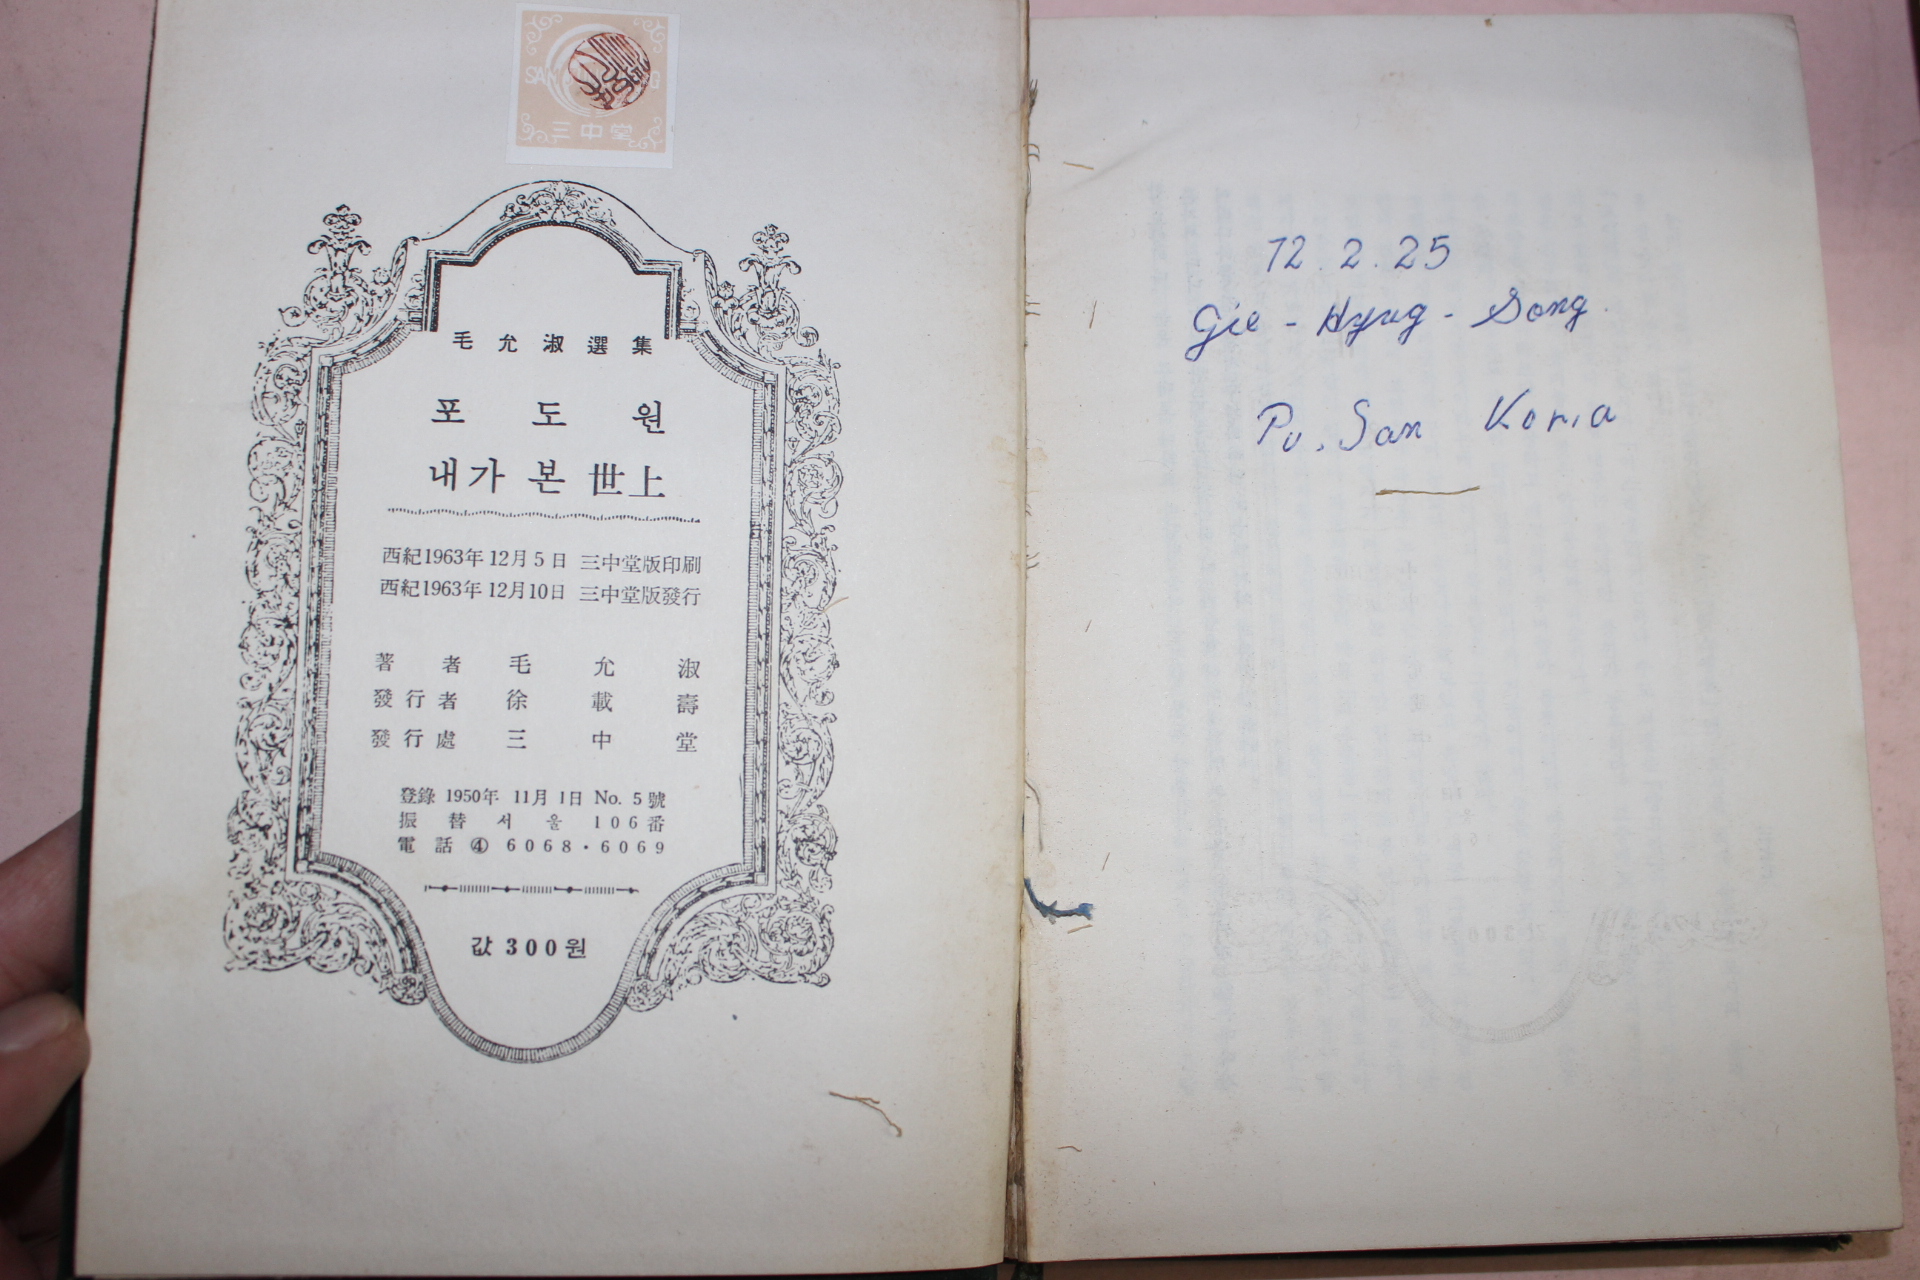 三中堂
毛允淑選集
포도원
내가 본 世上
西紀1963年 12月 5日 三中堂版印刷
西紀1963年 12月10日 三中堂版發行
著者 毛允淑
發行者 徐載壽
發行處 三中堂
登錄 1950年 11月 1日 No. 5號
振替 서울 106番
電話 ④ 6068·6069
값 300원
72.2.25
Gie-Hyug-Song.
Pu.San Koria